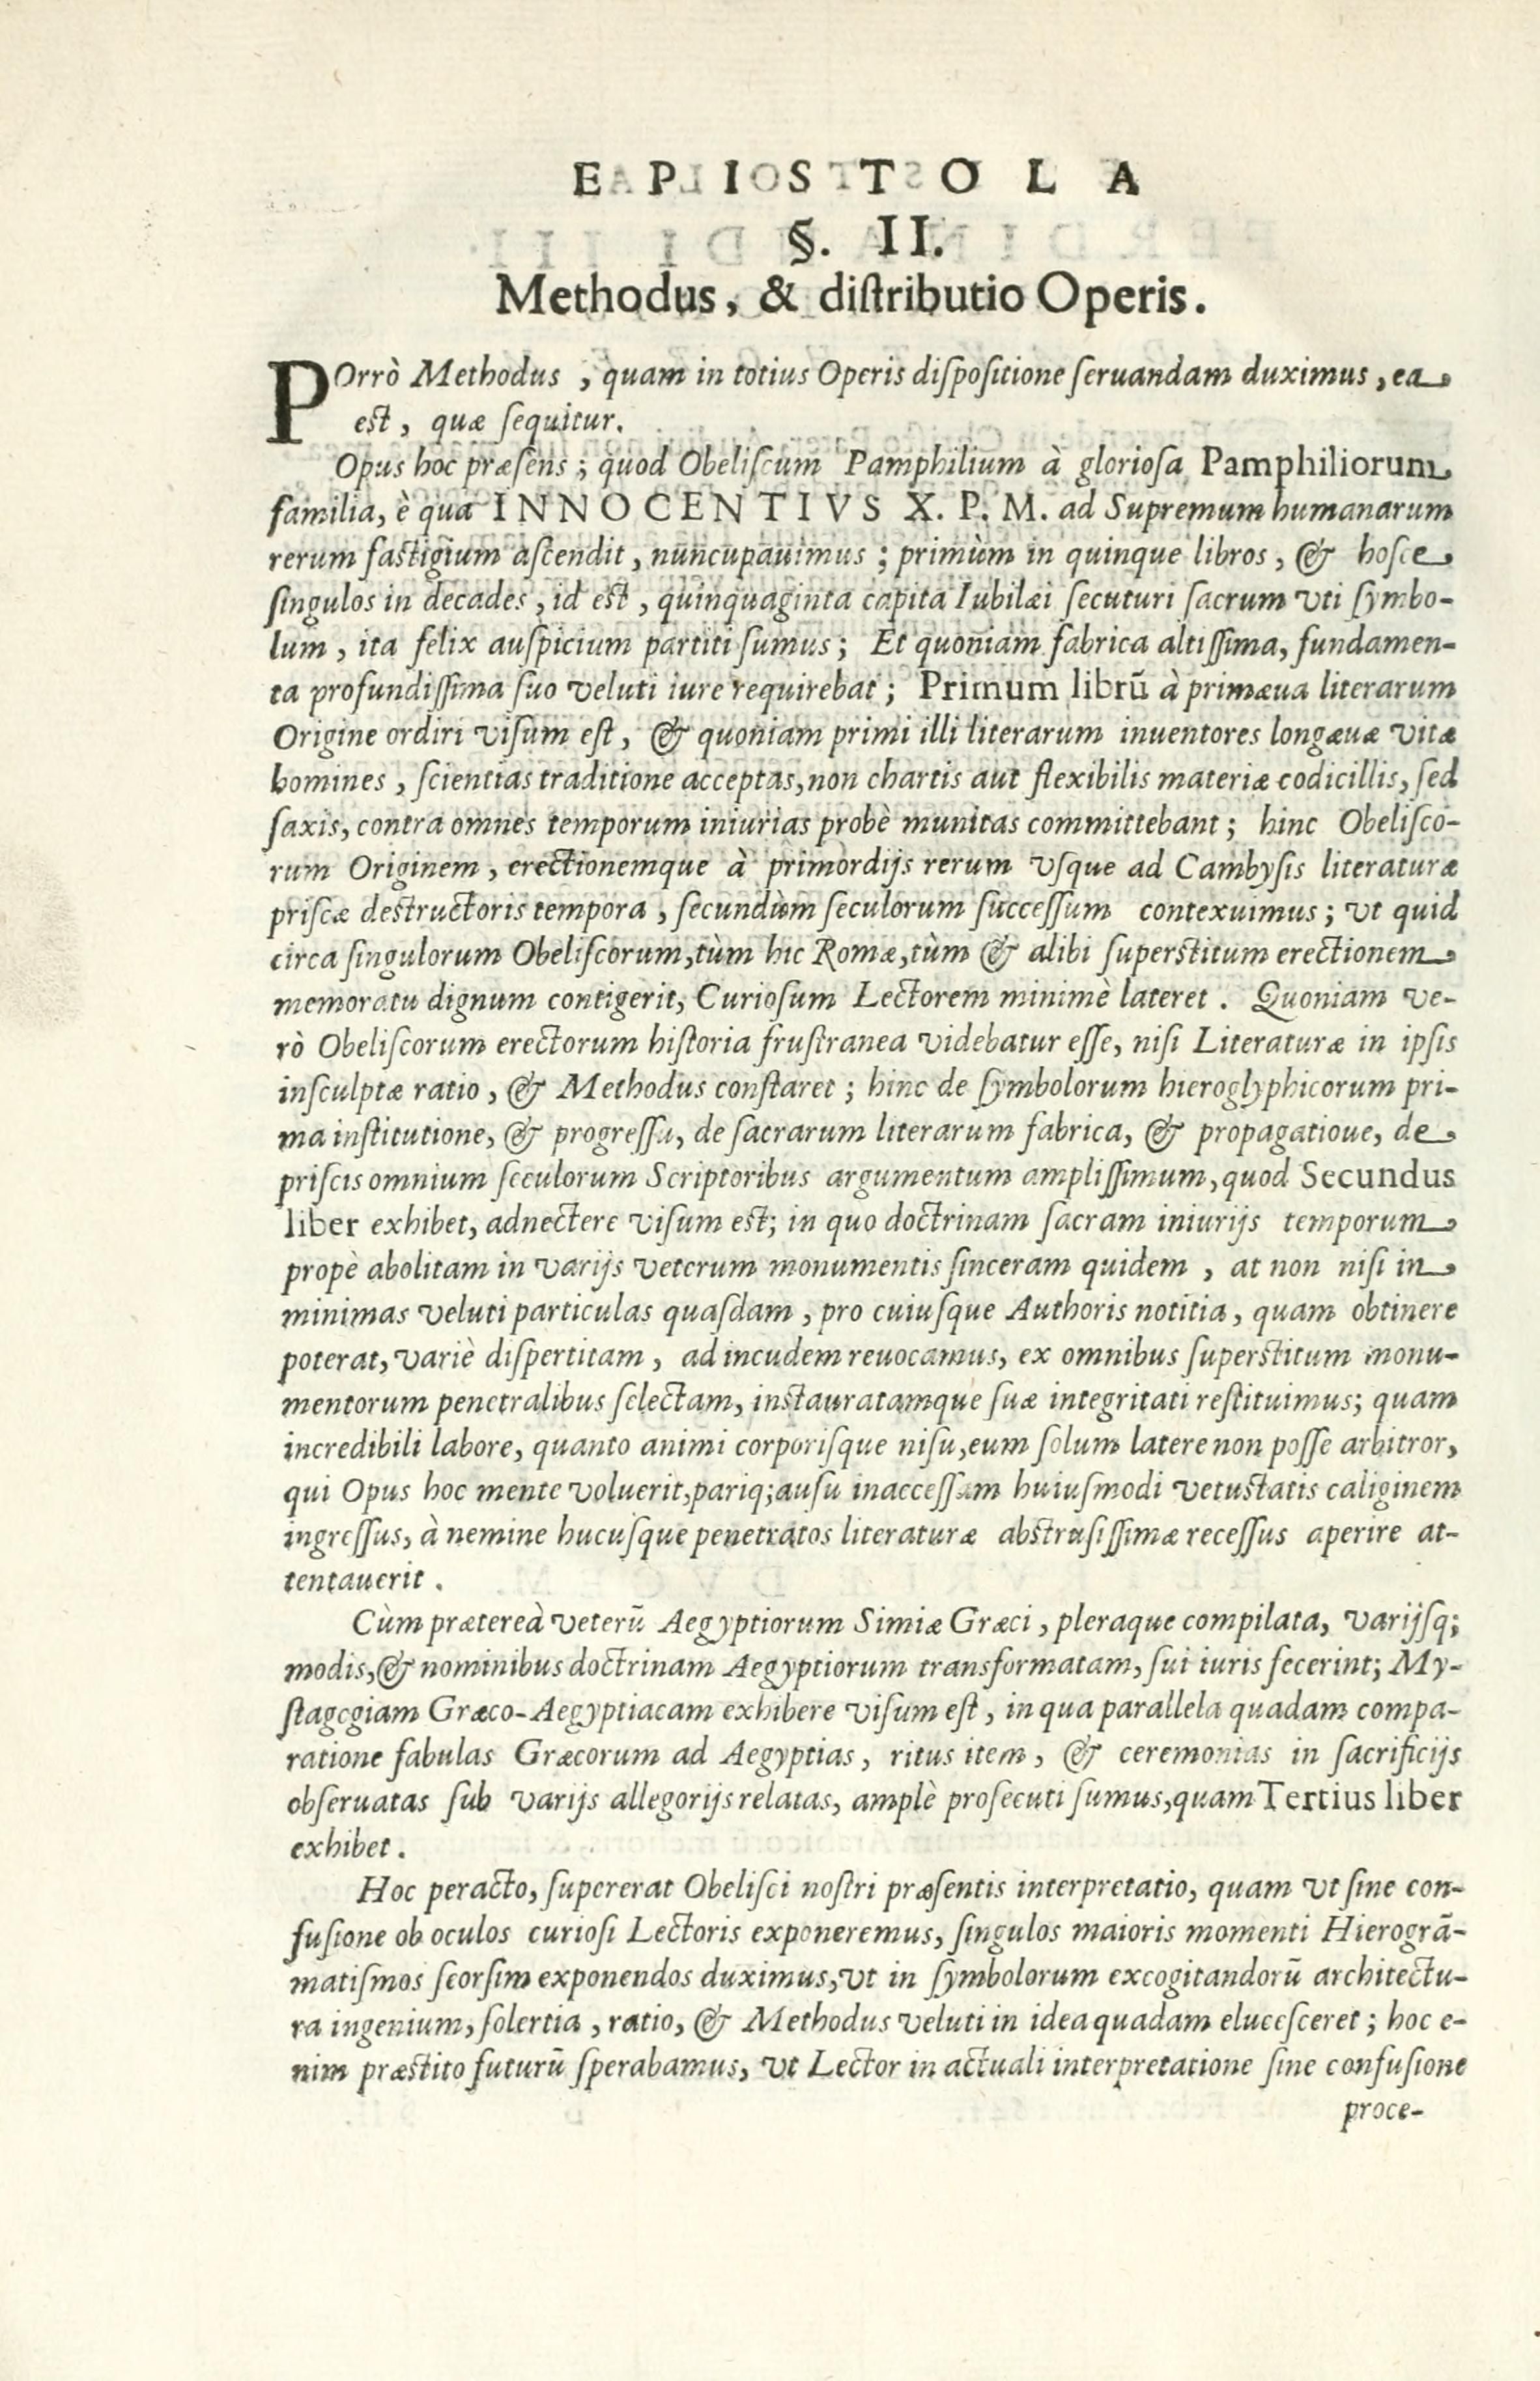 EPISTOLA
§. II.
Methodus, & diſtributio Operis.
POrrò Methodus, quam in totius Operis diſpoſitione ſeruandam duximus, ea
eſt, quæ ſequitur.
Opus hoc præſens; quod Obeliſcum Pamphilium à glorioſa Pamphiliorum
familia, è qua INNOCENTIVS X. P. M. ad Supremum humanarum
rerum faſtigium aſcendit, nuncupauimus; primùm in quinque libros, & hoſce
ſingulos in decades, id eſt, quinquaginta capita Iubilæi ſecuturi ſacrum vti ſymbo-
lum, ita felix auſpicium partiti ſumus; Et quoniam fabrica altiſſima, fundamen-
ta profundiſſima ſuo veluti iure requirebat; Primum librũ à primæua literarum
Origine ordiri viſum eſt, & quoniam primi illi literarum inuentores longæuæ vitæ
homines, ſcientias traditione acceptas, non chartis aut flexibilis materiæ codicillis, ſed
ſaxis, contra omnes temporum iniurias probè munitas committebant; hinc Obeliſco-
rum Originem, erectionemque à primordijs rerum vſque ad Cambyſis literaturæ
priſcæ deſtructoris tempora, ſecundùm ſeculorum ſucceſſum contexuimus; vt quid
circa ſingulorum Obeliſcorum, tùm hic Romæ, tùm & alibi ſuperſtitum erectionem
memoratu dignum contigerit, Curioſum Lectorem minimè lateret. Quoniam ve-
rò Obeliſcorum erectorum hiſtoria fruſtranea videbatur eſſe, niſi Literaturæ in ipſis
inſculptæ ratio, & Methodus conſtaret; hinc de ſymbolorum hieroglyphicorum pri-
ma inſtitutione, & progreſſu, de ſacrarum literarum fabrica, & propagatioue, de
priſcis omnium ſeculorum Scriptoribus argumentum ampliſſimum, quod Secundus
liber exhibet, adnectere viſum eſt; in quo doctrinam ſacram iniurijs temporum
propè abolitam in varijs veterum monumentis ſinceram quidem, at non niſi in
minimas veluti particulas quaſdam, pro cuiuſque Authoris notitia, quam obtinere
poterat, variè diſpertitam, ad incudem reuocamus, ex omnibus ſuperſtitum monu-
mentorum penetralibus ſelectam, inſtauratamque ſuæ integritati reſtituimus; quam
incredibili labore, quanto animi corporiſque niſu, eum ſolum latere non poſſe arbitror,
qui Opus hoc mente voluerit, pariq; auſu inacceſſam huiuſmodi vetuſtatis caliginem
ingreſſus, à nemine hucuſque penetratos literaturæ abſtruſiſſimæ receſſus aperire at-
tentauerit.
Cùm prætereà veterũ Aegyptiorum Simiæ Græci, pleraque compilata, varijſq;
modis, & nominibus doctrinam Aegyptiorum transformatam, ſui iuris fecerint; My-
ſtagogiam Græco-Aegyptiacam exhibere viſum eſt, in qua parallela quadam compa-
ratione fabulas Græcorum ad Aegyptias, ritus item, & ceremonias in ſacrificijs
obſeruatas ſub varijs allegorijs relatas, amplè proſecuti ſumus, quam Tertius liber
exhibet.
Hoc peracto, ſupererat Obeliſci noſtri præſentis interpretatio, quam vt ſine con-
fuſione ob oculos curioſi Lectoris exponeremus, ſingulos maioris momenti Hierogrã-
matiſmos ſeorſim exponendos duximus, vt in ſymbolorum excogitandorũ architectu-
ra ingenium, ſolertia, ratio, & Methodus veluti in idea quadam eluceſceret; hoc e-
nim præſtito futurũ ſperabamus, vt Lector in actuali interpretatione ſine confuſione
proce-